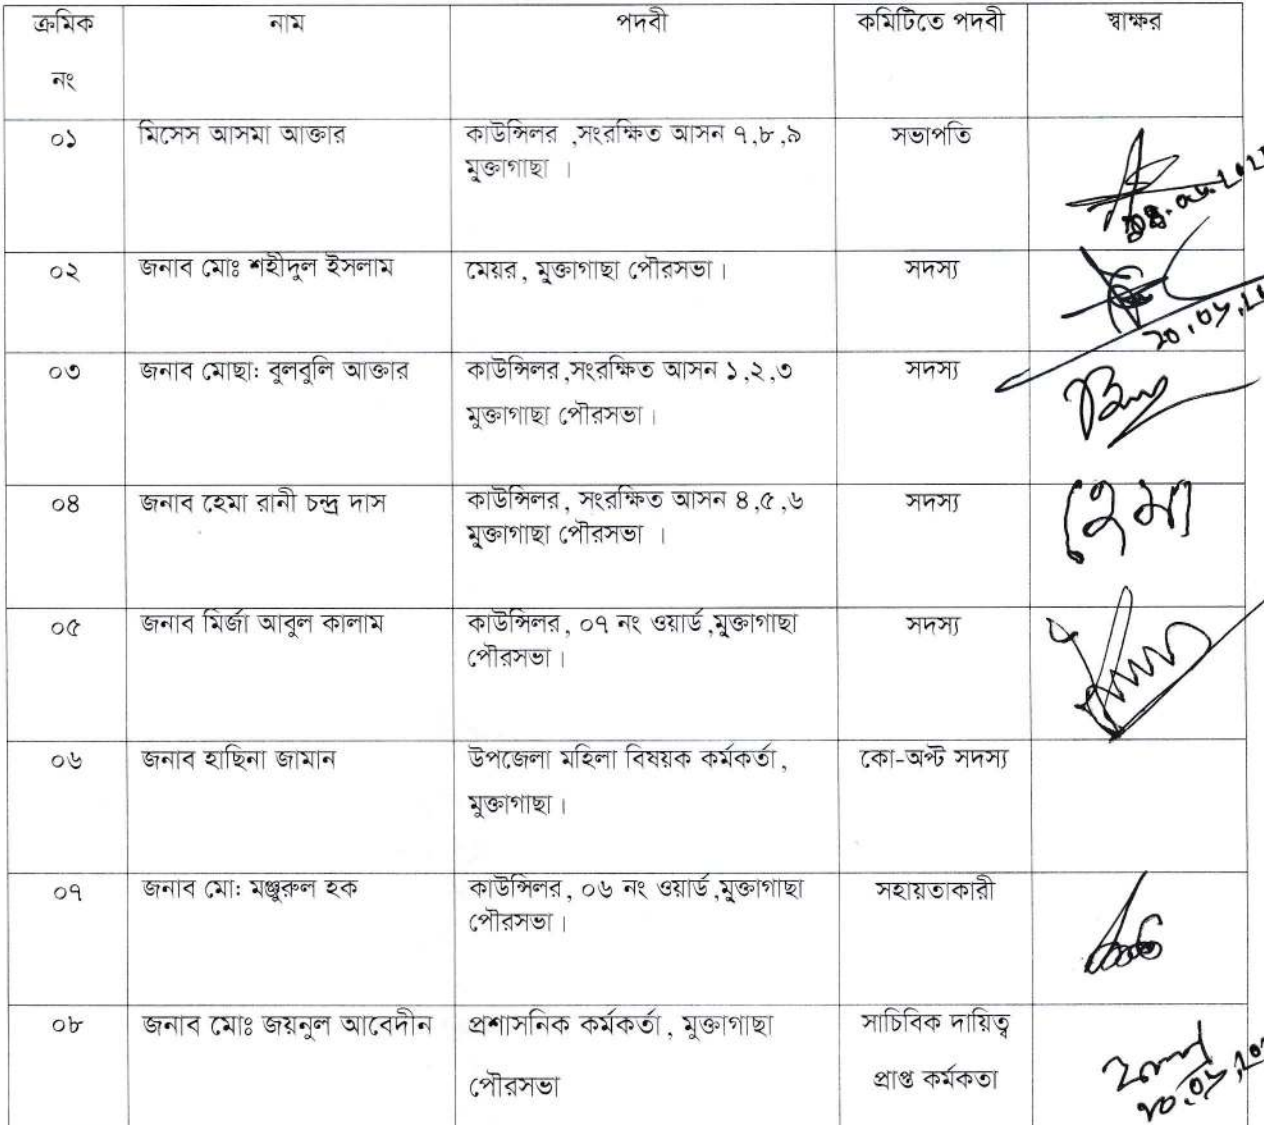 ক্রমিক নাম পদবী কমিটিতে পদবী স্বাক্ষর
নং
০১ মিসেস আসমা আক্তার কাউন্সিলর ,সংরক্ষিত আসন ৭,৮,৯ সভাপতি
মুক্তাগাছা ।
০২ জনাব মোঃ শহীদুল ইসলাম মেয়র, মুক্তাগাছা পৌরসভা। সদস্য
০৩ জনাব মোছা: বুলবুলি আক্তার কাউন্সিলর,সংরক্ষিত আসন ১,২,৩ সদস্য
মুক্তাগাছা পৌরসভা।
০৪ জনাব হেমা রানী চন্দ্র দাস কাউন্সিলর, সংরক্ষিত আসন ৪,৫,৬ সদস্য হেমা
মুক্তাগাছা পৌরসভা ।
০৫ জনাব মির্জা আবুল কালাম কাউন্সিলর, ০৭ নং ওয়ার্ড,মুক্তাগাছা সদস্য
পৌরসভা।
০৬ জনাব হাছিনা জামান উপজেলা মহিলা বিষয়ক কর্মকর্তা, কো-অপ্ট সদস্য
মুক্তাগাছা।
০৭ জনাব মো: মঞ্জুরুল হক কাউন্সিলর, ০৬ নং ওয়ার্ড,মুক্তাগাছা সহায়তাকারী
পৌরসভা।
০৮ জনাব মোঃ জয়নুল আবেদীন প্রশাসনিক কর্মকর্তা, মুক্তাগাছা সাচিবিক দায়িত্ব
পৌরসভা প্রাপ্ত কর্মকতা